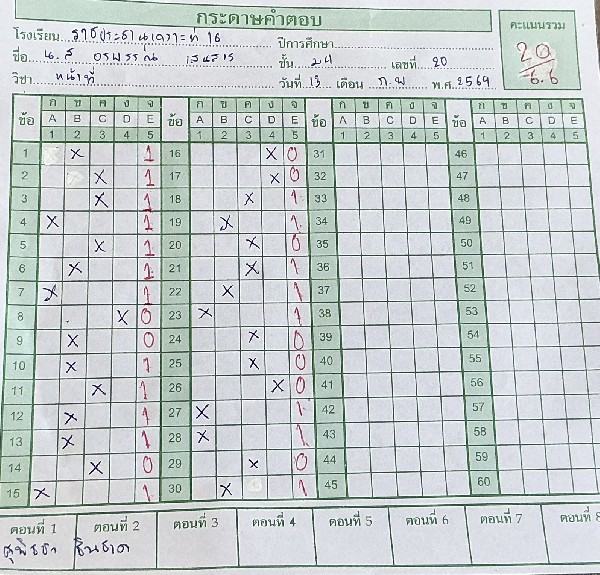 กระดาษคำตอบ
คะแนนรวม
20
6.6
โรงเรียน ราชประชานุเคราะห์ 16 ปีการศึกษา
ชื่อ น.ส อรพรรณ ชั้น ม.4 เลขที่ 20
วิชา หน้าที่ วันที่ 13 เดือน ก.พ พ.ศ. 2569
ข้อ ก ข ค ง จ ข้อ ก ข ค ง จ ข้อ ก ข ค ง จ ข้อ ก ข ค ง จ
A B C D E A B C D E A B C D E A B C D E
1 2 3 4 5 1 2 3 4 5 1 2 3 4 5 1 2 3 4 5
1 X 1 16 X 0 31 46
2 X 1 17 X 0 32 47
3 X 1 18 X 1 33 48
4 X 1 19 X 1 34 49
5 X 1 20 X 0 35 50
6 X 1 21 X 1 36 51
7 X 1 22 X 1 37 52
8 X 0 23 X 1 38 53
9 X 0 24 X 0 39 54
10 X 1 25 X 0 40 55
11 X 1 26 X 0 41 56
12 X 1 27 X 1 42 57
13 X 1 28 X 1 43 58
14 X 0 29 X 0 44 59
15 X 1 30 X 1 45 60
ตอนที่ 1 ตอนที่ 2 ตอนที่ 3 ตอนที่ 4 ตอนที่ 5 ตอนที่ 6 ตอนที่ 7 ตอนที่ 8